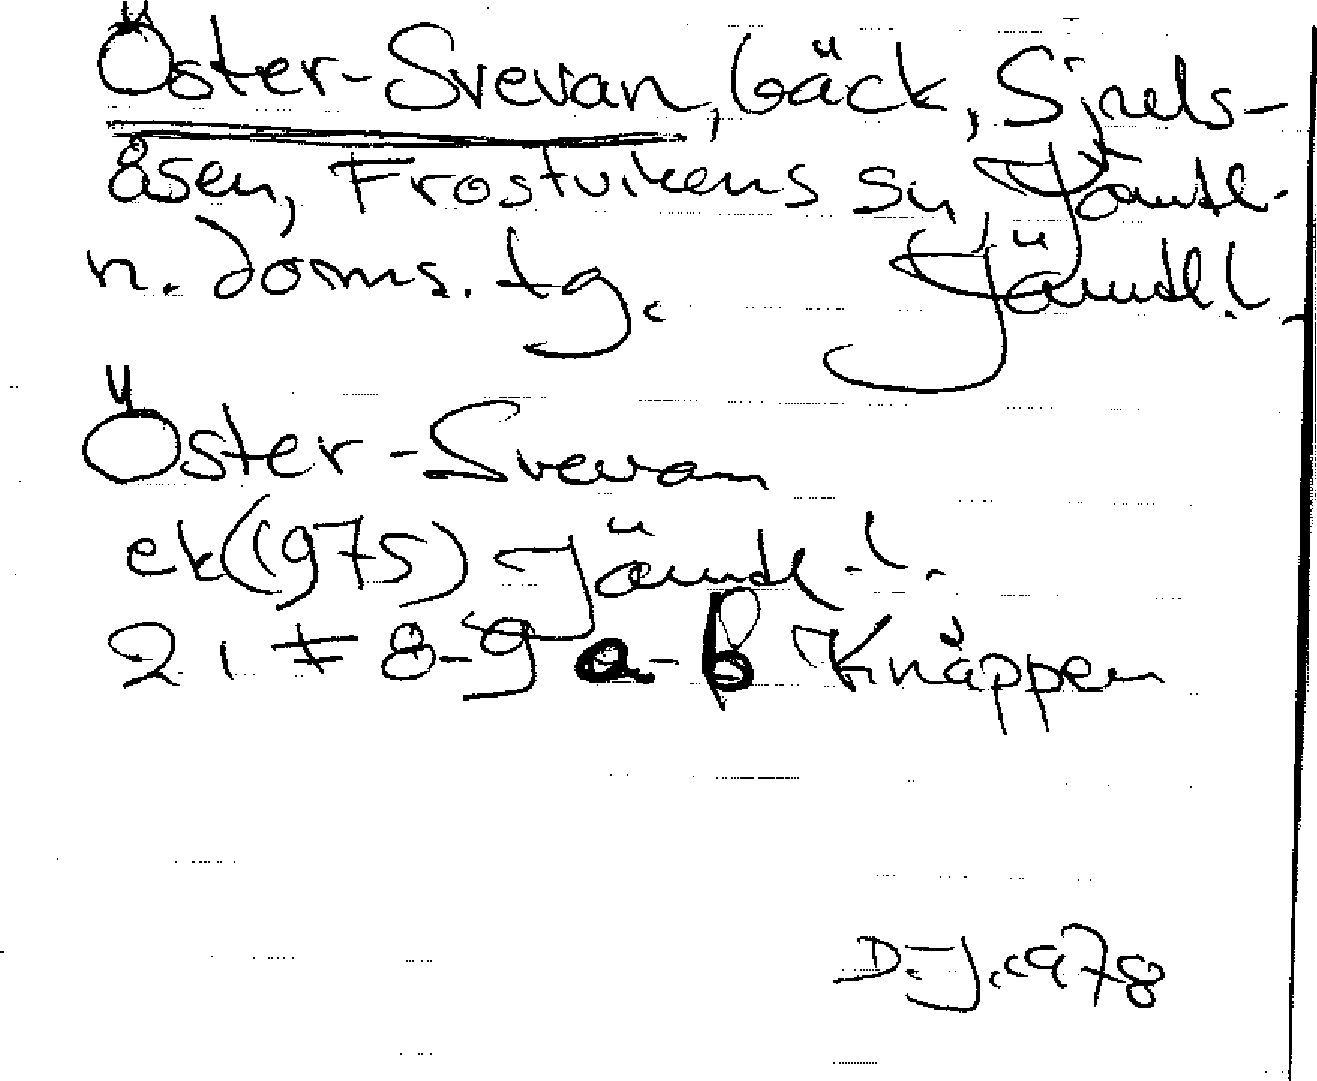 Öster-Svevan, bäck, Sjuls-
åsen, Frostvikens sn, Jämtl.
n. doms. tg. Jämtl.l.
Öster-Svevan
ek (1975) Jämtl.l.
21 F 8-9 a-b Knäppen
D.J. 1978